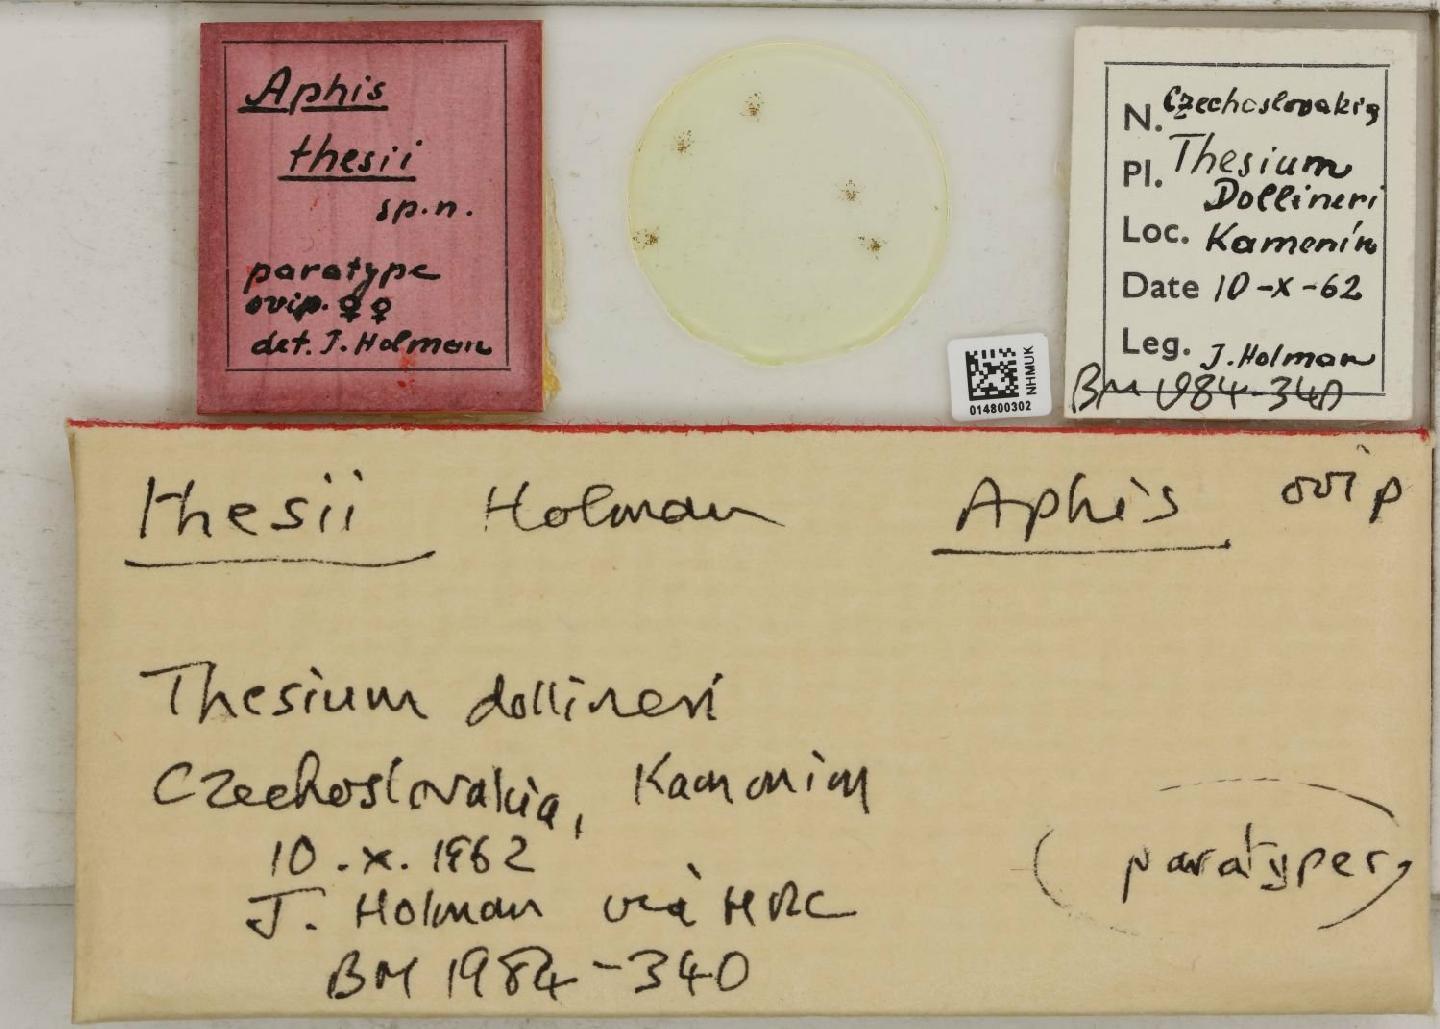 Aphis
thesii
sp.n.
paratype
ovip. ♀♀
det. J. Holman
NHMUK
014800302
N. Czechoslovakia
Pl. Thesium
Dollineri
Loc. Kamenín
Date 10-X-62
Leg. J. Holman
BM 1984-340
thesii Holman Aphis ovip
Thesium dollineri
Czechoslovakia, Kamenim
10.x.1962
(paratypes)
J. Holman via HRL
BM 1984-340